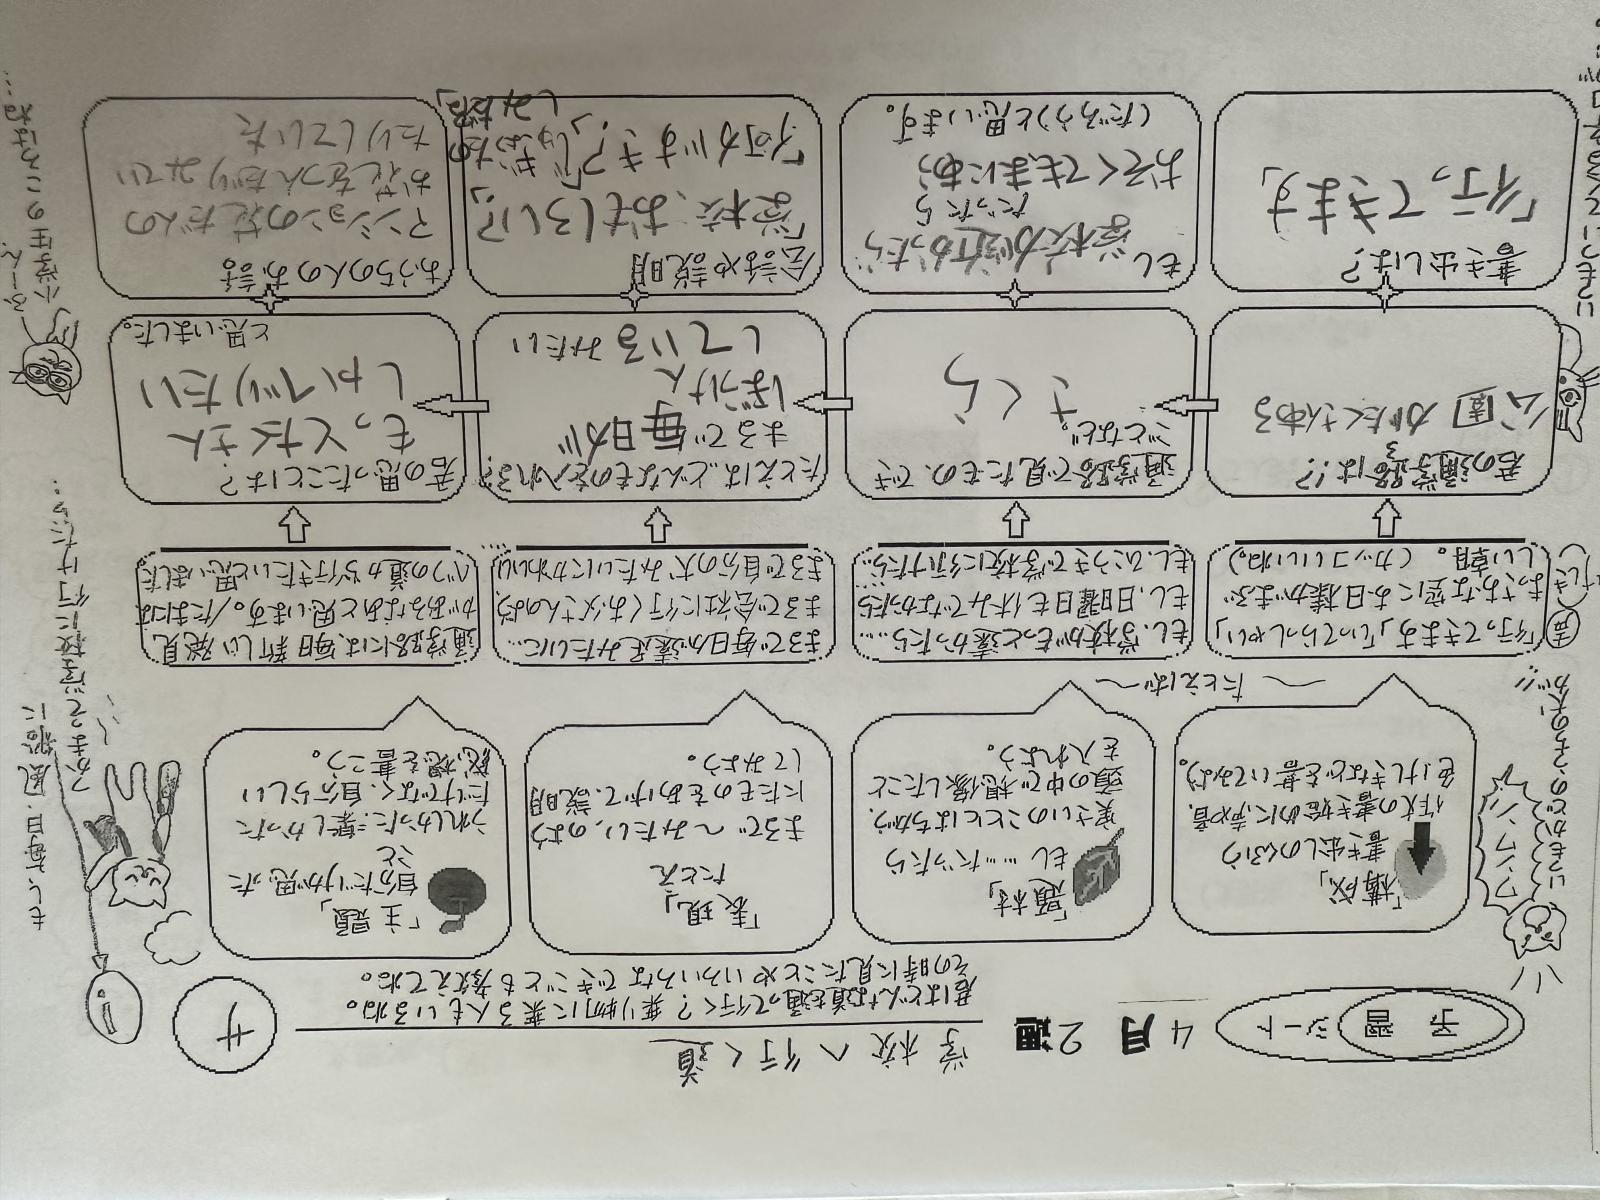 予習シート
4月 2週
学校へ行く道
君はどんな道を通って行く？乗り物に乗る人もいるね。
その時に見たことやいろいろなできごとも考えてね。
サ
「構成」
書き出しのくふう
作文の書き始めに、声や音、
色、けしきなどを書いてみよう。
「題材」
もし……だったら
実さいのこととはちがう、
頭の中で想像したこと
を入れよう。
「表現」
たとえ
まるで〜みたい、のよう
にたものをあげて、説明
してみよう。
「主題」
自分だけが思った
こと
うれしかった、楽しかった
だけでなく、自分らしい
感想を書こう。
〜たとえば〜
声
けしき
「行ってきます」「いってらっしゃい」
まっさおな空にお日様がまぶ
しい朝。（カッコいいね。）
もし、学校がもっと遠かったら……
もし、日曜日も休みでなかったら……
もしひこうきで学校に行けたら……
まるで毎日が遠足みたいに……
まるで会社に行くお父さんのよう
まるで自分の犬みたいにかわいい
……
通学路には、毎日新しい発見
があるなあと思います。／たまには
べつの道から行きたいと思いました
君の通学路は！？
公園がたくさんある
通学路で見たもの、でき
ごとなど。
さくら
たとえば、どんなものを入れる？
まるで毎日が
ぼうけん
しているみたい
君の思ったことは？
もっとたくさん
しゃべりたい
と思いました。
書き出しは？
「行ってきます」
もし
学校が近かったら
だったら
おそくてもまにあう
（だろう）と思います。
会話や説明
「学校、おもしろい？」
「何がすき？」
おうちの人のお話
マンションの花だんの
お花をつんだりみてい
たりしていた
ワンワン
いつもかどの、うちの犬が！！
もし、毎日、風船に
つかまって学校に行けたら…
小学生のころはね…
ふーん